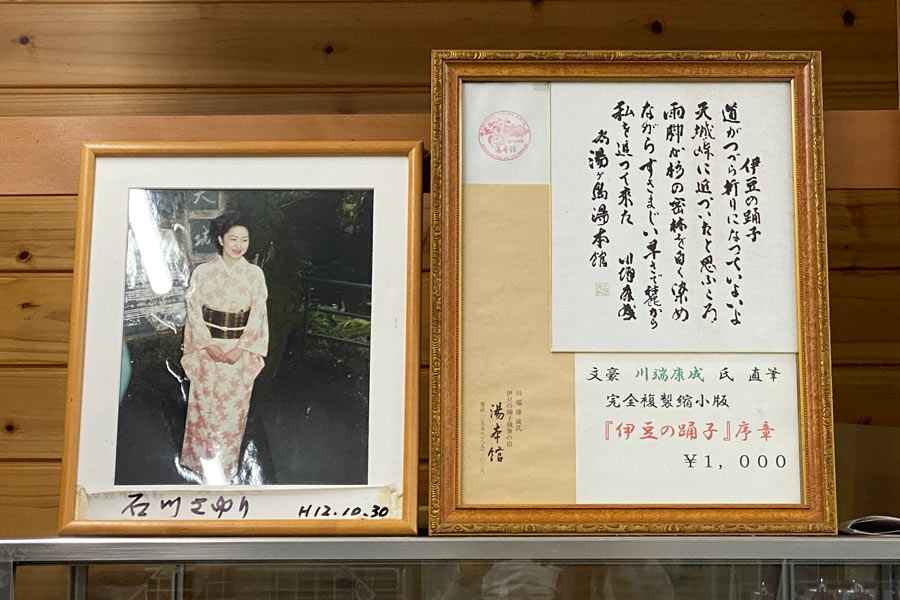 天
城
石川さゆり
H12.10.30
伊豆の踊子
道がつづら折りになっていよいよ
天城峠に近づいたと思ふころ、
雨脚が杉の密林を白く染め
ながらすさまじい早さで麓から
私を追って来た
川端康成
湯ヶ島湯本館
湯本館
川端康成氏
伊豆の踊子執筆の宿
湯本館
文豪 川端康成 氏 直筆
完全複製縮小版
『伊豆の踊子』序章
¥1,000